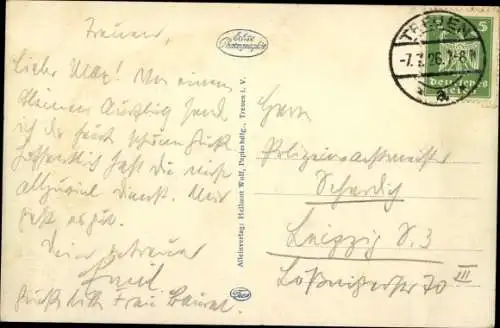 Treuen,
Lieber Ulli! Von einem
kleinen Ausflug send
ich die schönen Grüße.
Hoffentlich hast du nicht
allzuviel Dienst. Mir
geht es gut.
Dein getreuer
Grüße bitte Frau
Echte
Photographie
Alleinverlag: Hellmut Wolf, Papierhdlg., Treuen i. V.
TREUEN
-7.7.26. 7-8 N
a
5
Deutsches
Reich
Herrn
Polizeiwachtmeister
Leipzig S. 3
Lößnigerstr 70 III